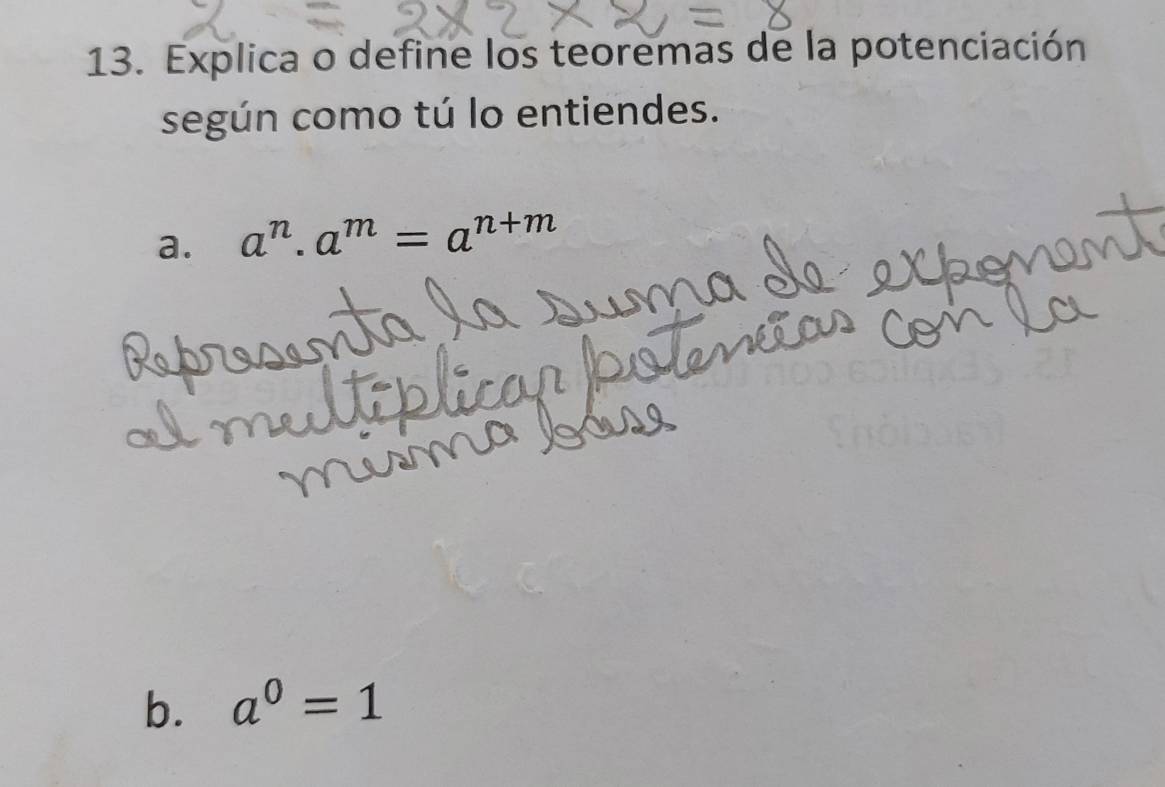 2 = 2x2x2 = 8
13. Explica o define los teoremas de la potenciación
según como tú lo entiendes.
a. aⁿ.aᵐ = aⁿ⁺ᵐ
Representa la suma de exponent
al multiplicar potencias con la
misma base
b. a⁰ = 1